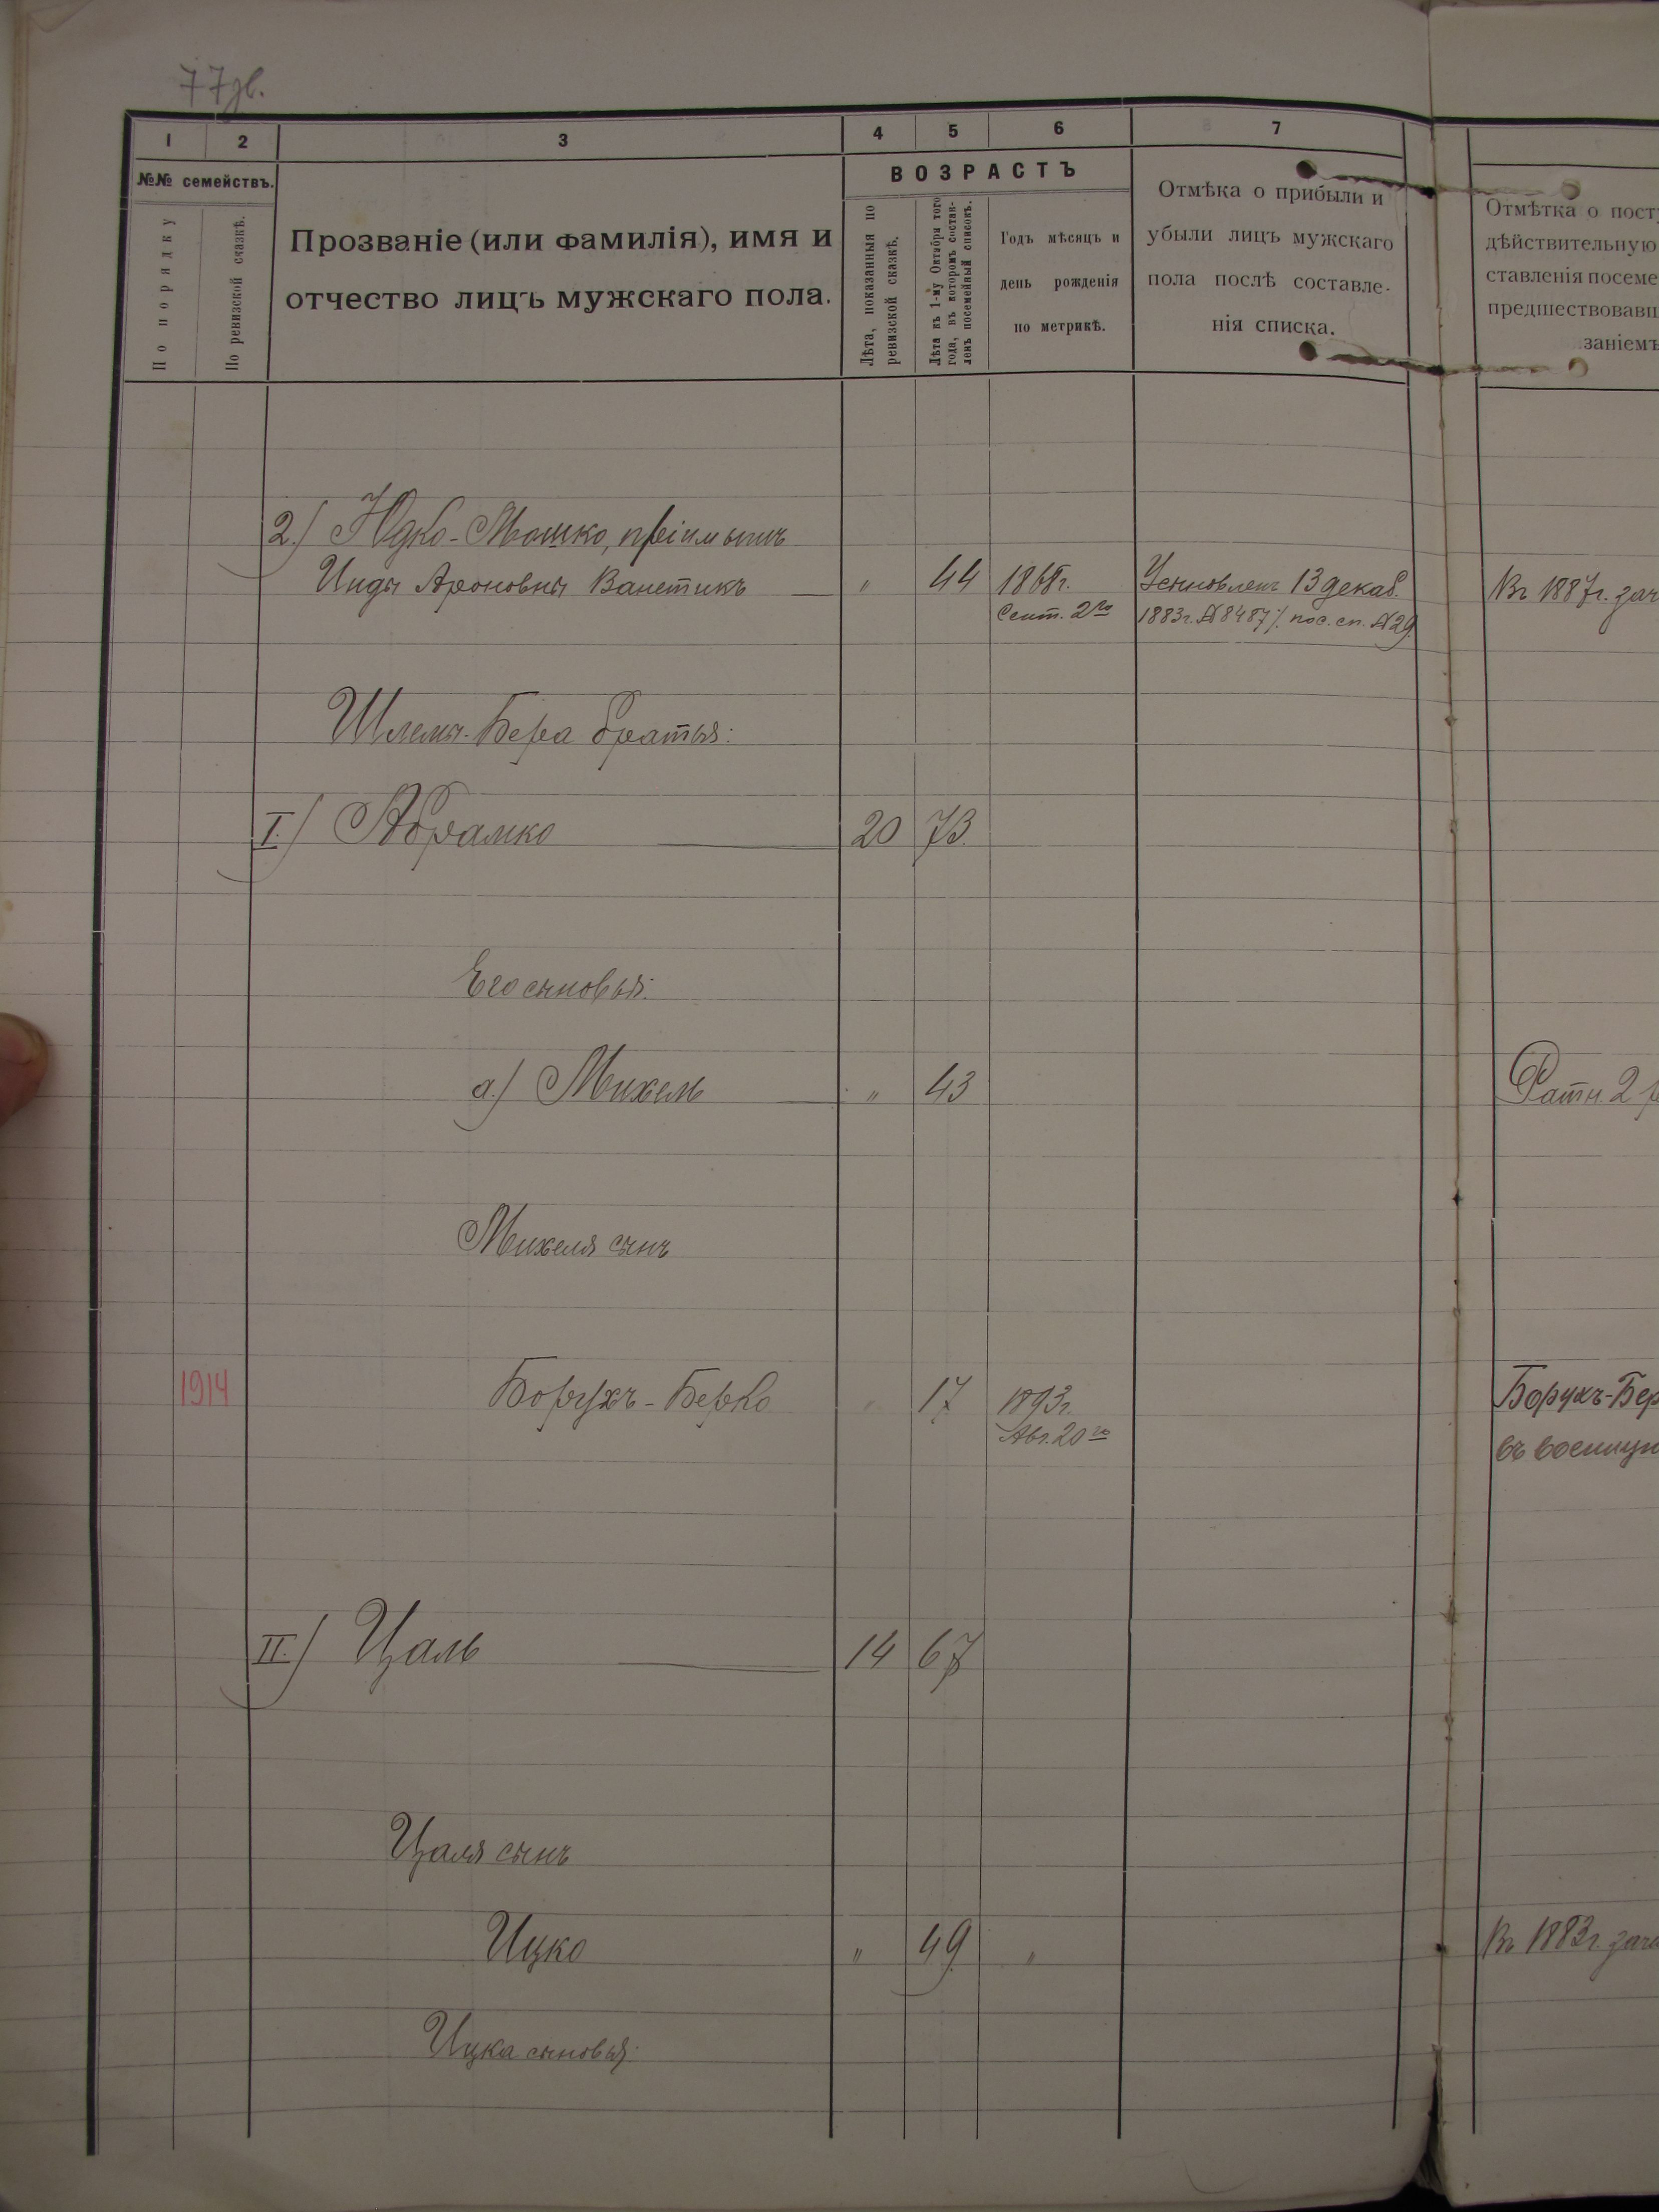 77зв.
1 2 3 4 5 6 7
№№ семействъ.
По порядку
По ревизской сказкѣ.
Прозваніе (или фамилія), имя и
отчество лицъ мужскаго пола.
ВОЗРАСТЪ
Лѣта, показанныя по
ревизской сказкѣ.
Лѣта къ 1-му Октября того
года, въ которомъ состав-
ленъ посемейный списокъ.
Годъ мѣсяцъ и
день рожденія
по метрикѣ.
Отмѣка о прибыли и
убыли лицъ мужскаго
пола послѣ составле-
нія списка.
Отмѣтка о пост
дѣйствительную
ставленія посеме
предшествовавш
заніемъ
2.) Юдко-Мошко, пріимышъ
Инды Ароновны Ванетикъ " 44 1868г. Усыновленъ 13 декаб. Въ 1887г. зач
Сент. 2го 1883г. № 8487 пос. сп. № 29.
Шлемы-Бера братья:
I.) Абрамко 20 73.
Его сыновья:
а.) Михель " 43 Ратн. 2 р
Михеля сынъ
1914 Борухъ-Берко " 17 1893г. Борухъ-Бер
Авг. 20го
II.) Цаль 14 67
Цаля сынъ
Ицко " 49. " Въ 1883г. зачи
Ицка сыновья: